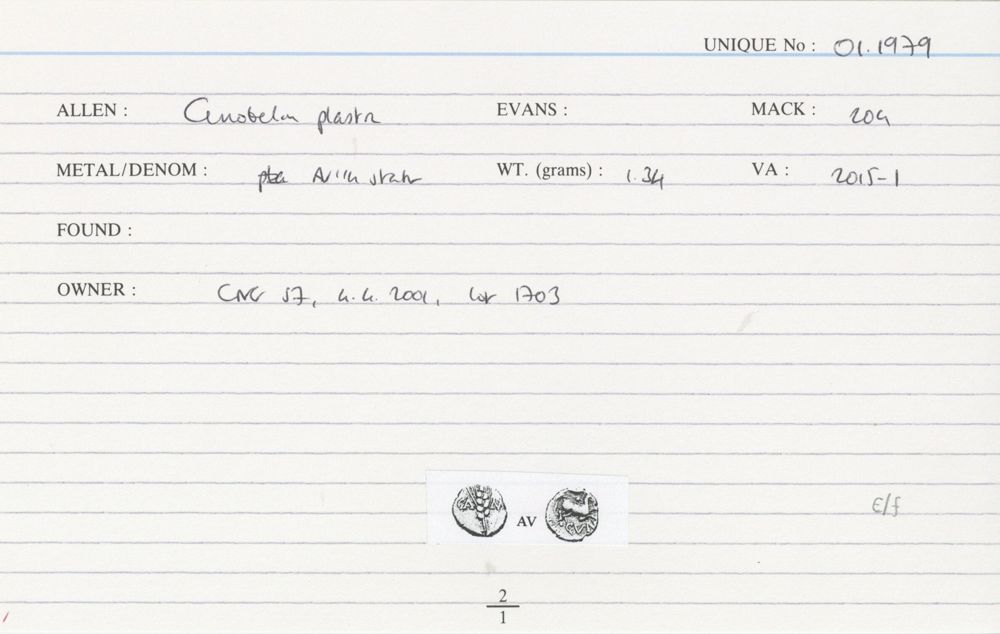 UNIQUE No : 01.1979
ALLEN : Cunobelin plastic EVANS : MACK : 204
METAL/DENOM : AV 1/4 stater WT. (grams) : 1.34 VA : 2015-1
FOUND :
OWNER : CNG 57, 4.4.2001, lot 1703
CA M
AV
CVN
E/f
2
1